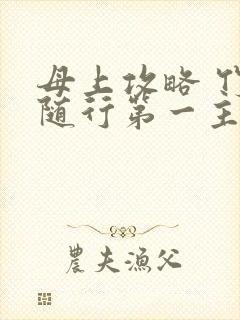 母上攻略
随行第一主
農夫漁父